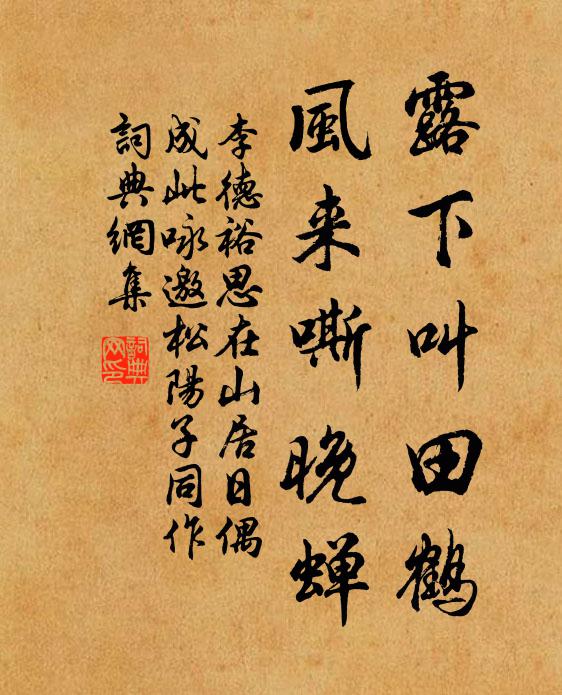 露下叫田鶴
風来嘶晚蝉
李德裕思在山居日偶
成此咏邀松陽子同作
詞典網集
詞典
网印